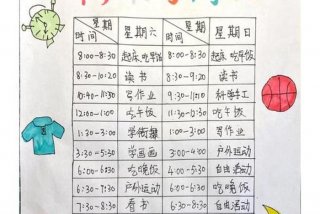 星期 时间 星期六 星期 时间 星期日
8:00-8:30 起床 吃早饭 8:00-8:30 起床 吃早饭
8:30-10:20 读书 8:30-9:20 读书
10:40-11:30 写作业 9:30-11:10 科学手工
12:00-1:00 吃午饭 11:30-12:30 吃午饭
1:30-3:00 学街舞 1:00 写作业
3:30-5:30 学画画 3:00-4:00 户外运动
6:00-6:30 吃晚饭 4:00-6:00 自由活动
6:30-7:30 户外运动 6:30 吃晚饭
7:30-8:30 看书 6:30-8:30 自由活动